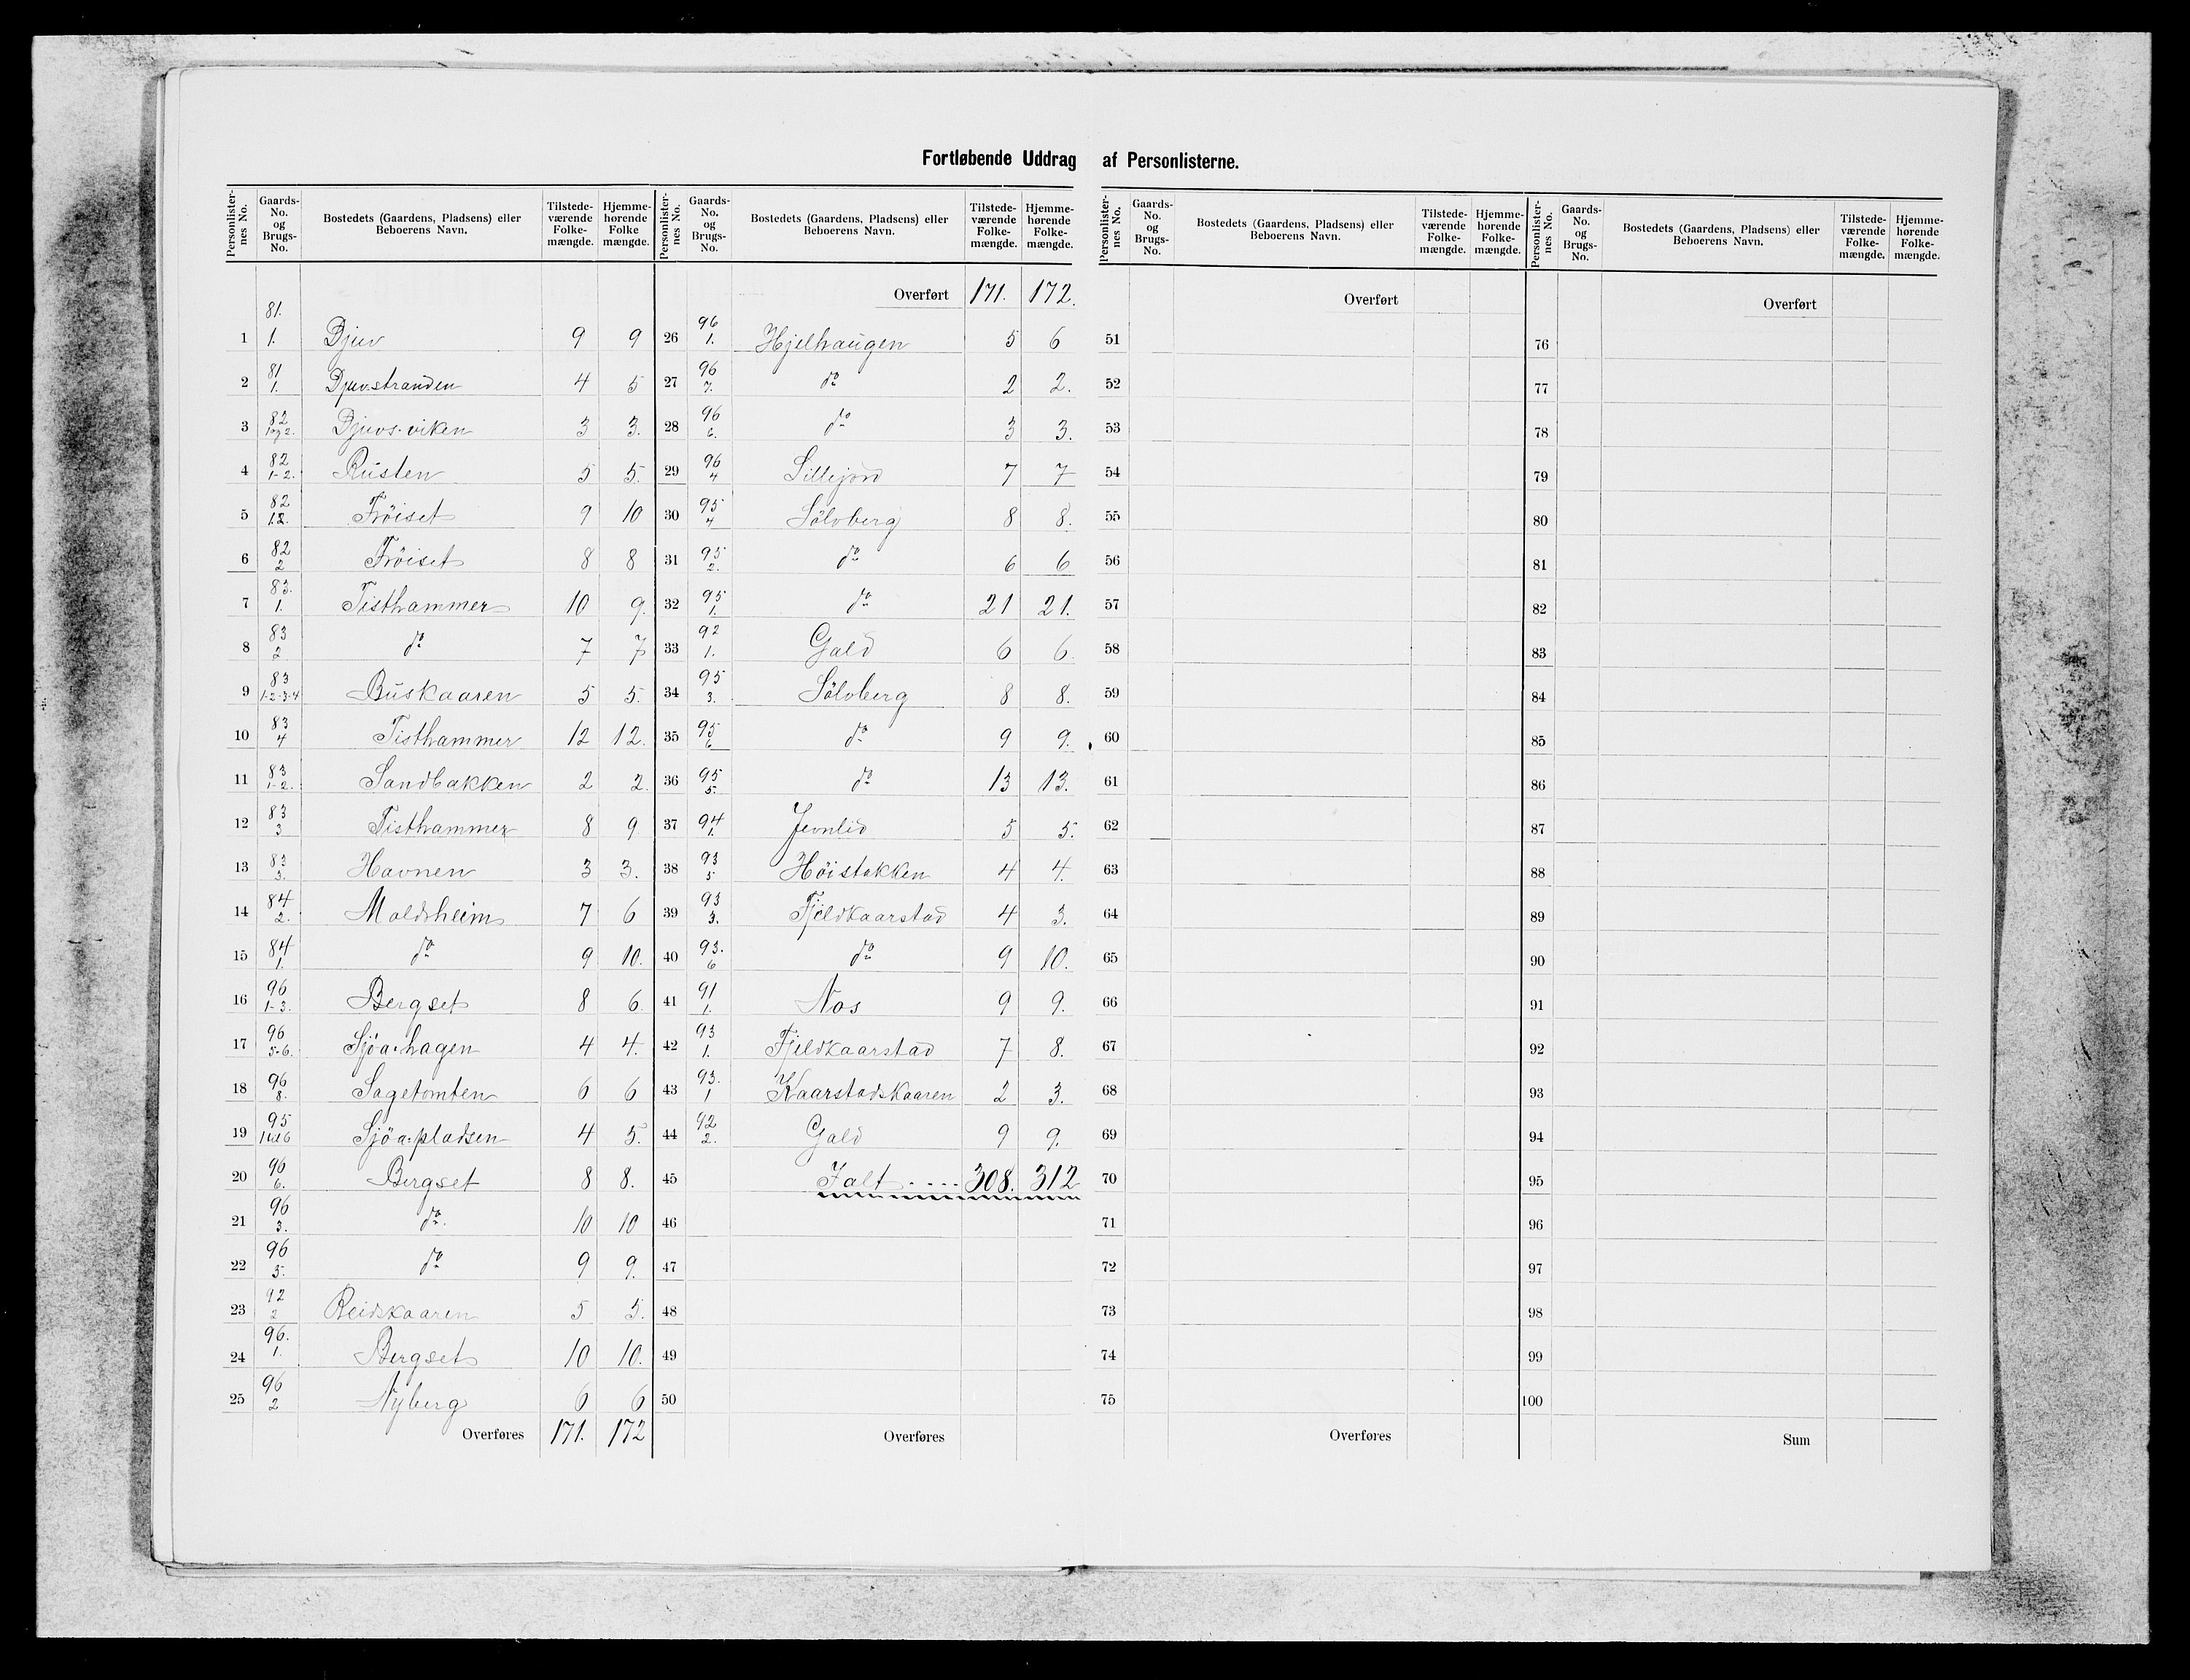 Fortløbende Uddrag af Personlisterne.
Personlisternes No. Gaards-No. og Brugs-No. Bostedets (Gaardens, Pladsens) eller Beboerens Navn. Tilstedeværende Folkemængde. Hjemmehørende Folke mængde.
1 81. 1. Djuv 9 9
2 81 1. Djuvstranden 4 5
3 82 1 og 2. Djuvs-viken 3 3.
4 82 1-2. Rusten 5 5.
5 82 1.2. Fröiset 9 10
6 82 2 Fröiset 8 8
7 83. 1. Tisthammer 10 9.
8 83 2 do 7 7
9 83 1-2-3-4 Buskaaren 5 5.
10 83 4 Tisthammer 12 12.
11 83 1-2. Sandbakken 2 2.
12 83 3 Tisthammer 8 9
13 83 3. Havnen 3 3.
14 84 2. Moldsheim 7 6
15 84 1. do 9 10.
16 96 1-3. Bergset 8 6
17 96 5-6. Sjöa-hagen 4 4.
18 96 8. Sagetomten 6 6
19 95 1til6 Sjöa-pladsen 4 5.
20 96 6. Bergset 8 8.
21 96 3. do. 10 10
22 96 5. do 9 9.
23 92 2 Reidskaaren 5 5.
24 96. 1. Bergset 10 10.
25 96 2 Nyberg 6 6
Overføres 171. 172
Personlisternes No. Gaards-No. og Brugs-No. Bostedets (Gaardens, Pladsens) eller Beboerens Navn. Tilstedeværende Folkemængde. Hjemmehørende Folkemængde.
Overført 171. 172.
26 96 1. Hjelhaugen 5 6
27 96 7. do 2 2.
28 96 6. do 3 3.
29 96 4 Lillejord 7 7
30 95 4 Sölvberg 8 8.
31 95 2. do 6 6
32 95 1. do 21 21.
33 92 1. Gald 6 6.
34 95 3. Sölvberg 8 8.
35 95 6 do 9 9.
36 95 5. do 13 13.
37 94 1. Jevnlid 5 5.
38 93 5 Höistakken 4 4.
39 93 3. Fjeldkaarstad 4 3.
40 93. 6 do 9 10.
41 91 1. Nos 9 9.
42 93 1. Fjeldkaarstad 7 8.
43 93. 1 Kaarstadskaaren 2 3.
44 92 2. Gald 9 9.
45 Ialt .... 308. 312
46
47
48
49
50
Overføres
Personlisternes No. Gaards-No. og Brugs-No. Bostedets (Gaardens, Pladsens) eller Beboerens Navn. Tilstedeværende Folkemængde. Hjemmehørende Folkemængde.
Overført
51
52
53
54
55
56
57
58
59
60
61
62
63
64
65
66
67
68
69
70
71
72
73
74
75
Overføres
Personlisternes No. Gaards-No. og Brugs-No. Bostedets (Gaardens, Pladsens) eller Beboerens Navn. Tilstedeværende Folkemængde. Hjemmehørende Folkemængde.
Overført
76
77
78
79
80
81
82
83
84
85
86
87
88
89
90
91
92
93
94
95
96
97
98
99
100
Sum